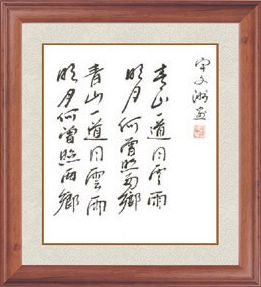 青山一道同雲雨
明月何曾照兩鄉
青山一道同雲雨
明月何曾照兩鄉